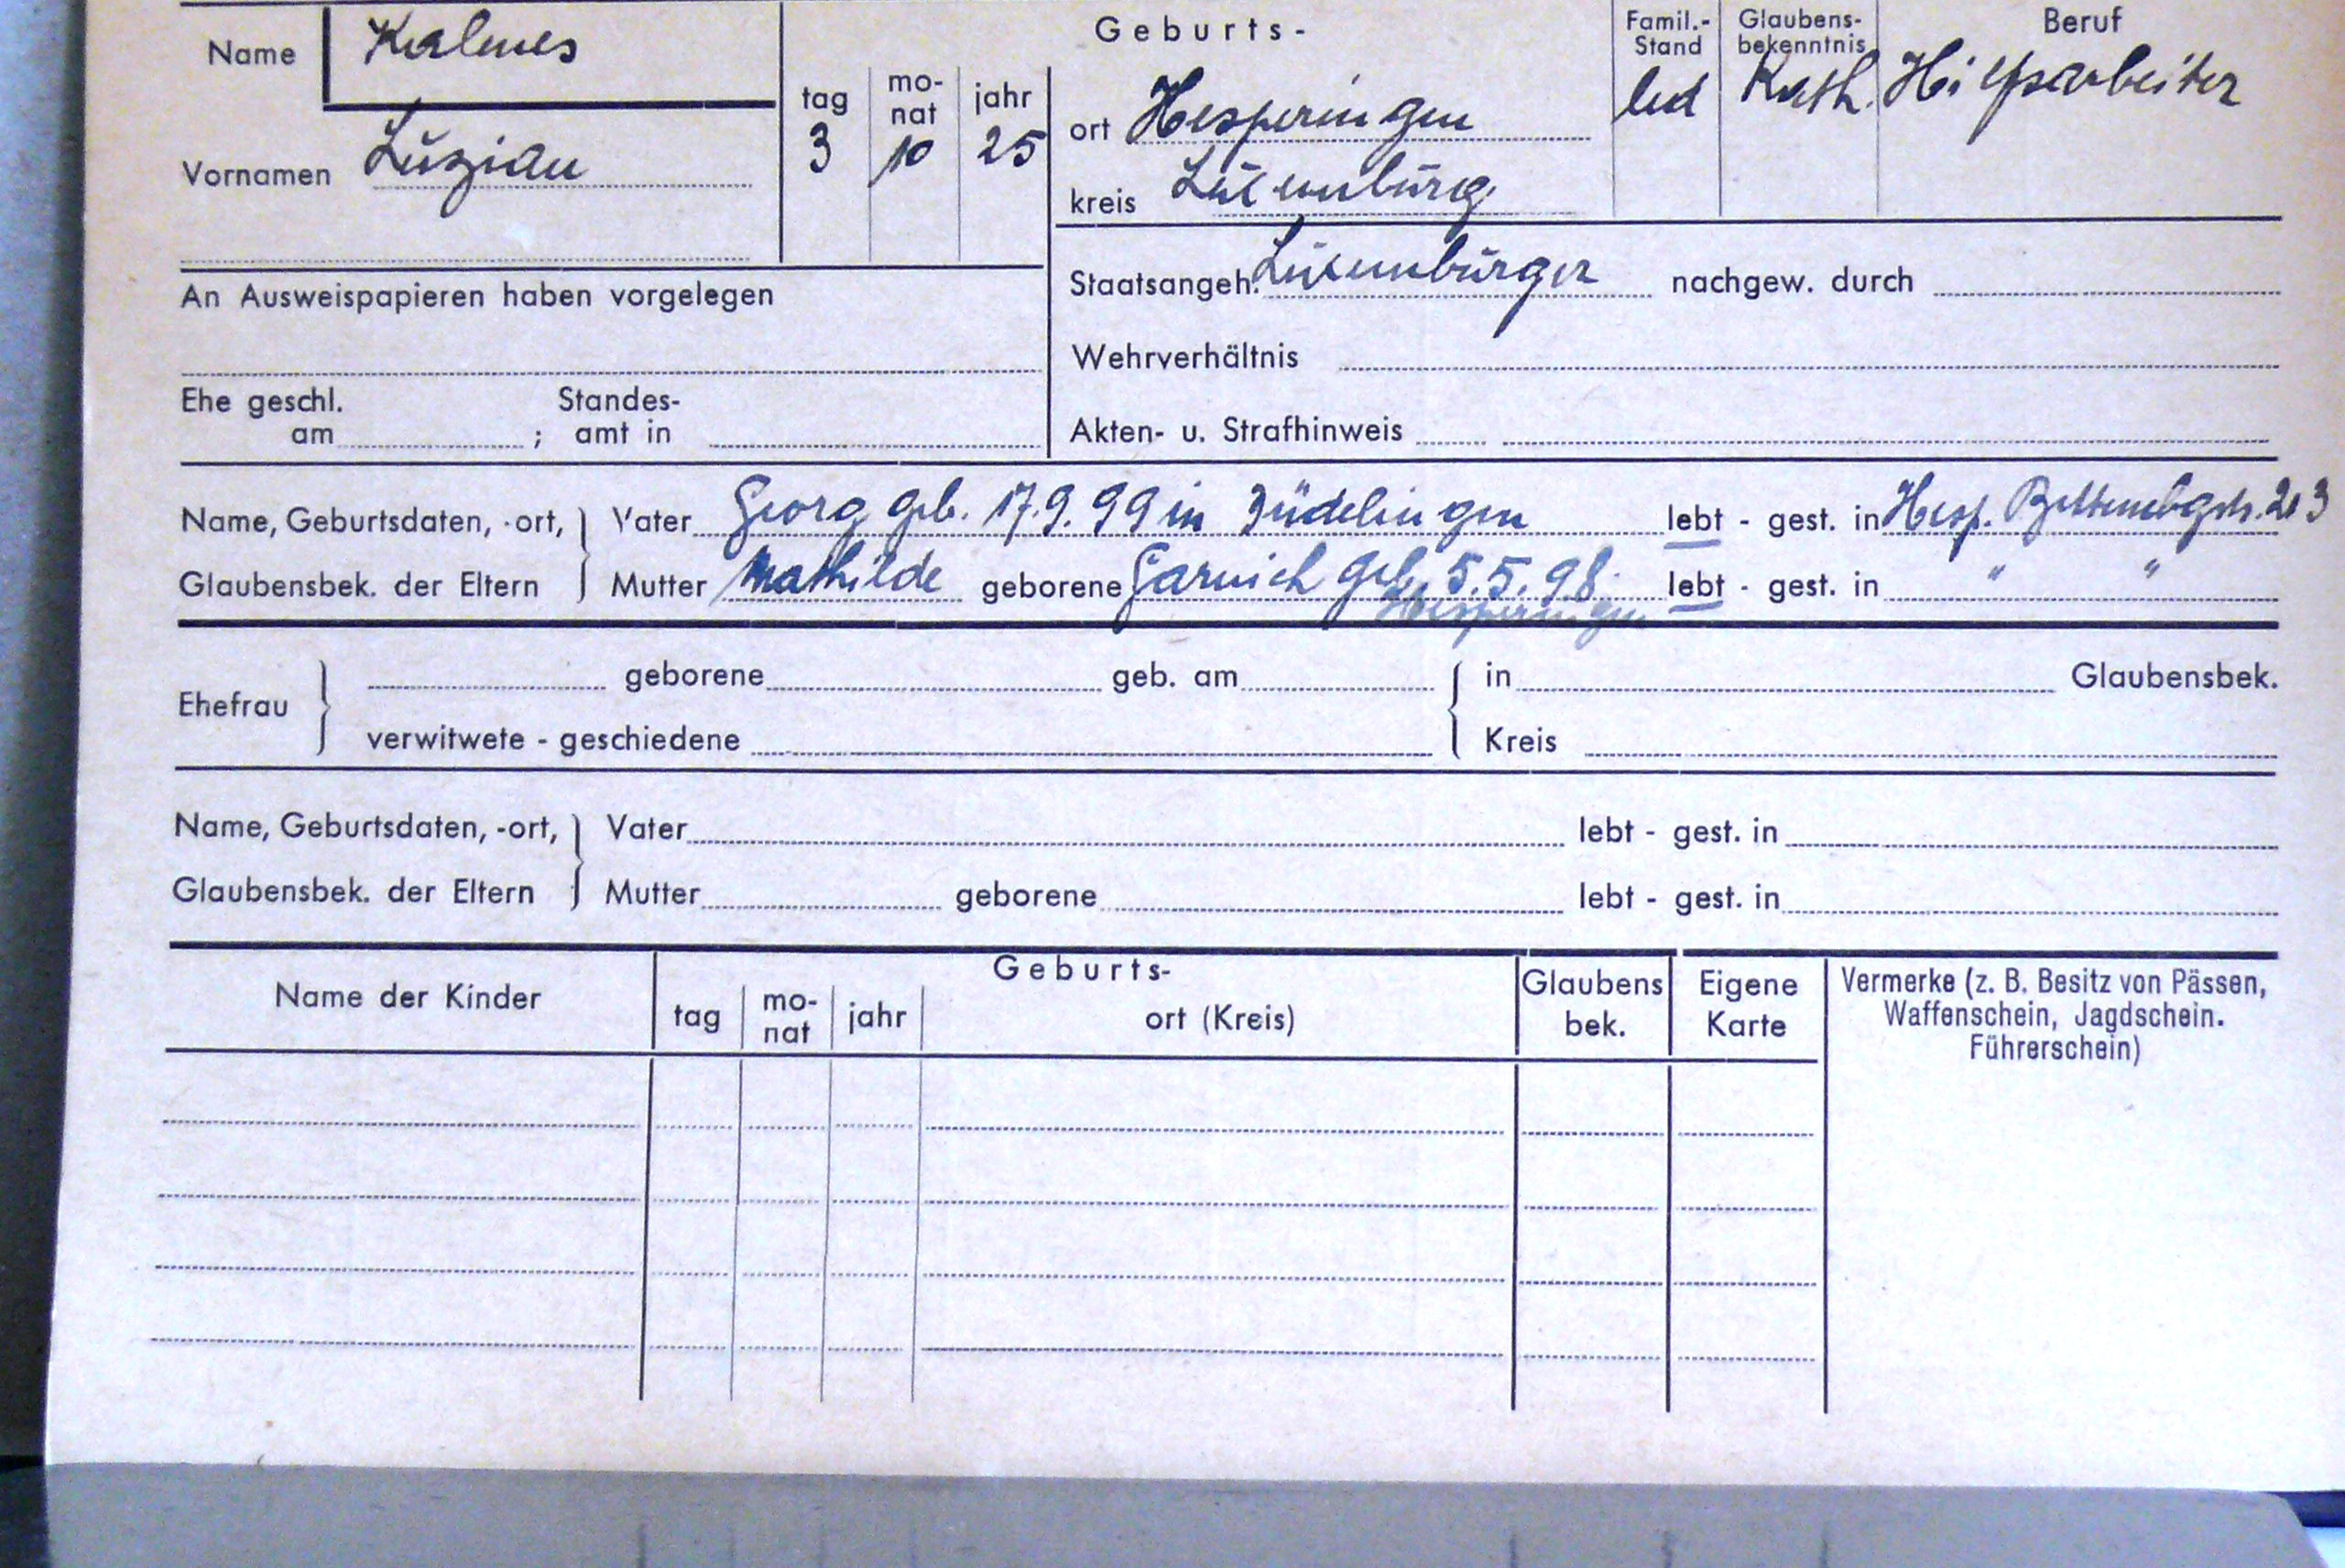 Name Kalmes
Vornamen Luzian
Geburts-
tag monat jahr
3 10 25
ort Hesperingen
kreis Luxemburg
Famil.-Stand led
Glaubensbekenntnis Kath.
Beruf Hilfsarbeiter
An Ausweispapieren haben vorgelegen
Staatsangeh. Luxemburger nachgew. durch
Wehrverhältnis
Ehe geschl. am ; Standesamt in
Akten- u. Strafhinweis
Name, Geburtsdaten, -ort, Vater Georg geb. 17.9.99 in Düdelingen lebt - gest. in Hesp. Bettembgstr. 213
Glaubensbek. der Eltern Mutter Mathilde geborene Garnich geb. 5.5.98. lebt - gest. in " "
Hesperingen
Ehefrau geborene geb. am in Glaubensbek.
verwitwete - geschiedene Kreis
Name, Geburtsdaten, -ort, Vater lebt - gest. in
Glaubensbek. der Eltern Mutter geborene lebt - gest. in
Name der Kinder
Geburts-
tag monat jahr ort (Kreis)
Glaubens bek.
Eigene Karte
Vermerke (z. B. Besitz von Pässen,
Waffenschein, Jagdschein.
Führerschein)